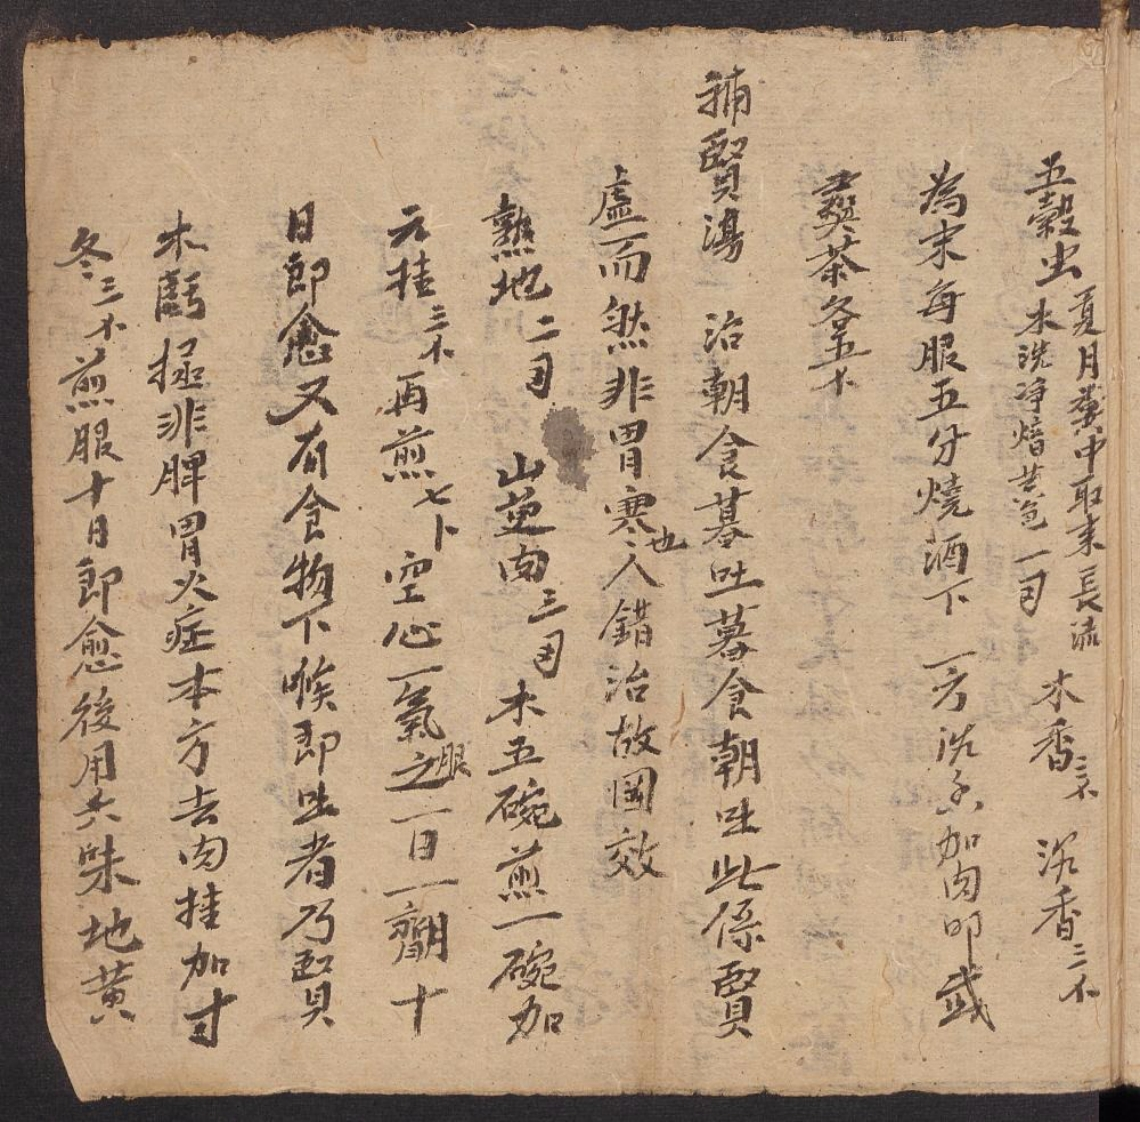 五穀虫 夏月糞中取来長流水洗净焙黄色一两 木香三个 沉香三个
為末每服五分燒酒下 一方沈香加肉叩或
茶各五个
補腎湯 治朝食暮吐暮食朝吐此係腎
虛而然非胃寒也人錯治故罔效
熟地二两 山萸肉三两 水五碗煎一碗加
元桂三个 再煎七卜 空心一氣服之一日一劑十
日即愈又有食物下喉即吐者乃腎
水虧極非脾胃火症本方去肉桂加寸
冬三个煎服十日即愈後用共柒地黄